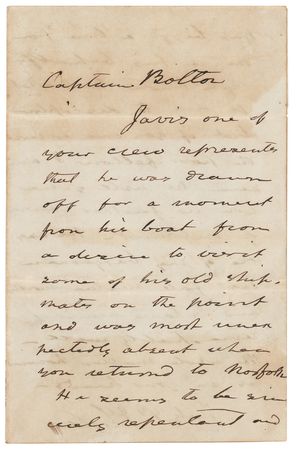 Captain Bolton
Javis one of
your crew represents
that he was drawn
off for a moment
from his boat from
a desire to visit
some of his old ship-
mates on the point
and was most unex
pectedly absent when
you returned to Norfolk
He seems to be sin
cerely repentant and